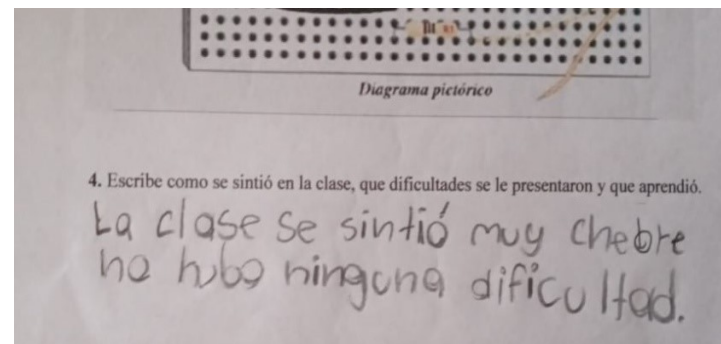 Diagrama pictórico
4. Escribe como se sintió en la clase, que dificultades se le presentaron y que aprendió.
La clase se sintió muy chebre
no hubo ninguna dificultad.